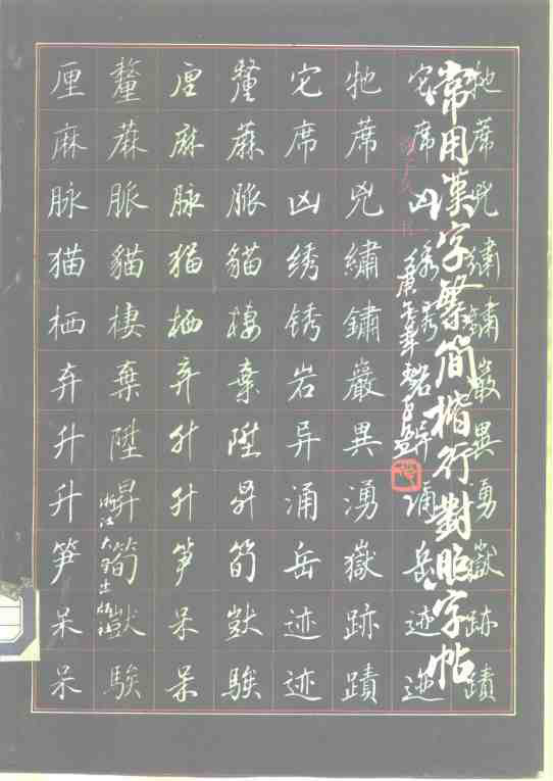 常用漢字繁简楷行對照字帖
浙江大学出版社
厘 釐 厘 釐 它 牠 它 牠
麻 蔴 麻 蔴 席 蓆 席 蓆
脉 脈 脉 脈 凶 兇 凶 兇
猫 貓 猫 貓 绣 繡 绣 繡
栖 棲 栖 棲 锈 鏽 鏽
弃 棄 弃 棄 岩 巖 巖
升 陞 升 陞 异 異 異
升 昇 升 昇 涌 湧 涌 湧
笋 筍 笋 筍 岳 嶽 岳 嶽
呆 獃 呆 獃 迹 跡 迹 跡
呆 騃 呆 騃 迹 蹟 迹 蹟